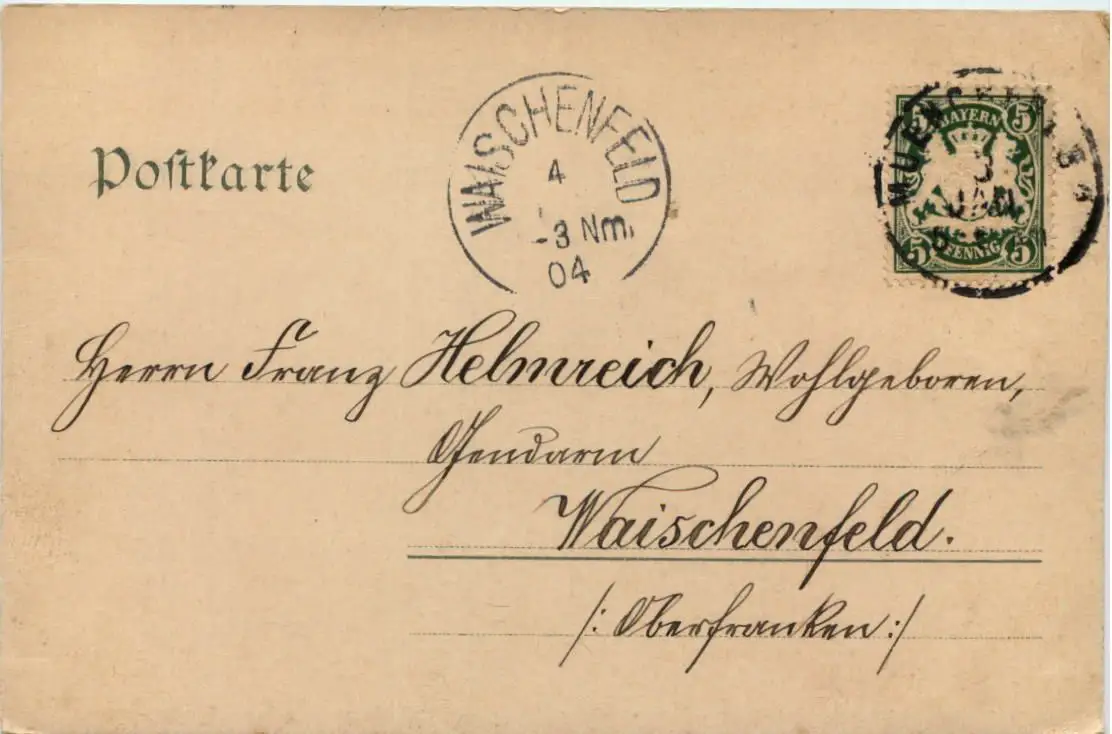 Postkarte
WAISCHENFELD
4
-3 Nm.
04
5 BAYERN 5
3
JAN
5 PFENNIG 5
Herrn Franz Helmreich, Wohlgeboren,
Gendarm
Waischenfeld.
/: Oberfranken :/